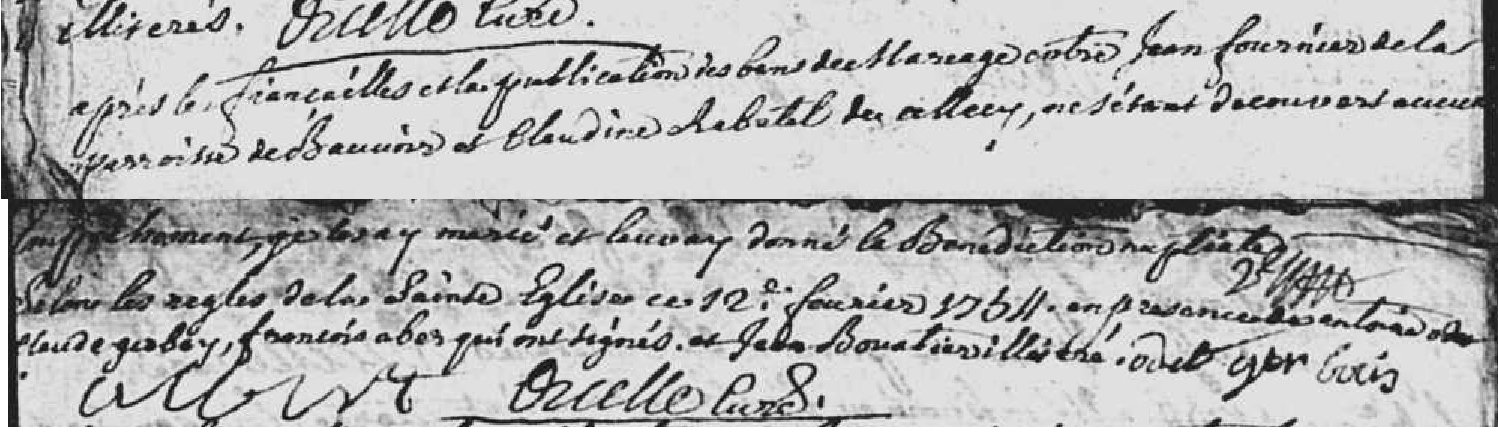 illiterés. Orcelle Curé.
après les fiançailles et la publication des bans de Mareage entre Jean fournier de la
parroisse de Bauvoir et Claudine Rabatel de, ne sétant decouvert aucun
Empechement, je les ay marié et leur ay donné la Benediction nuptiale
Selon les regles de la Sainte Eglise ce 12e. fevrier 1754. en presence de antoine odet
Claude gerbey, françois aber qui ont signés. et Jean Bouatier illiteré. odet
Orcelle Curé.